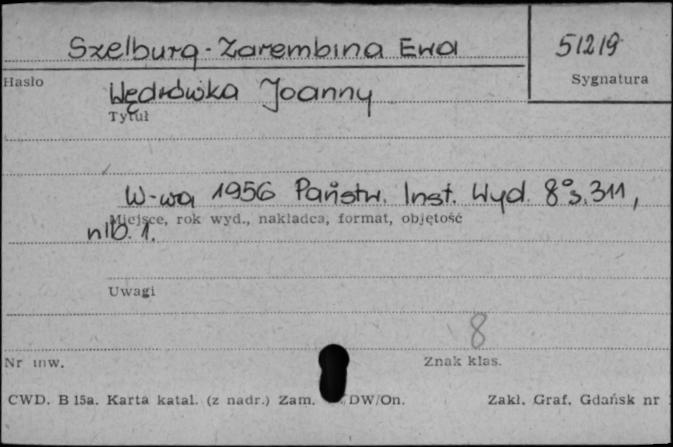 Szelburg-Zarembina Ewa
51219
Hasło
Sygnatura
Wędrówka Joanny
Tytuł
W-wa 1956 Państw. Inst. Wyd. 8° s. 311,
Miejsce, rok wyd., nakładca, format, objętość
nlb. 1.
Uwagi
8
Nr inw.
Znak klas.
CWD. B 15a. Karta katal. (z nadr.) Zam. DW/On.
Zakł. Graf. Gdańsk nr